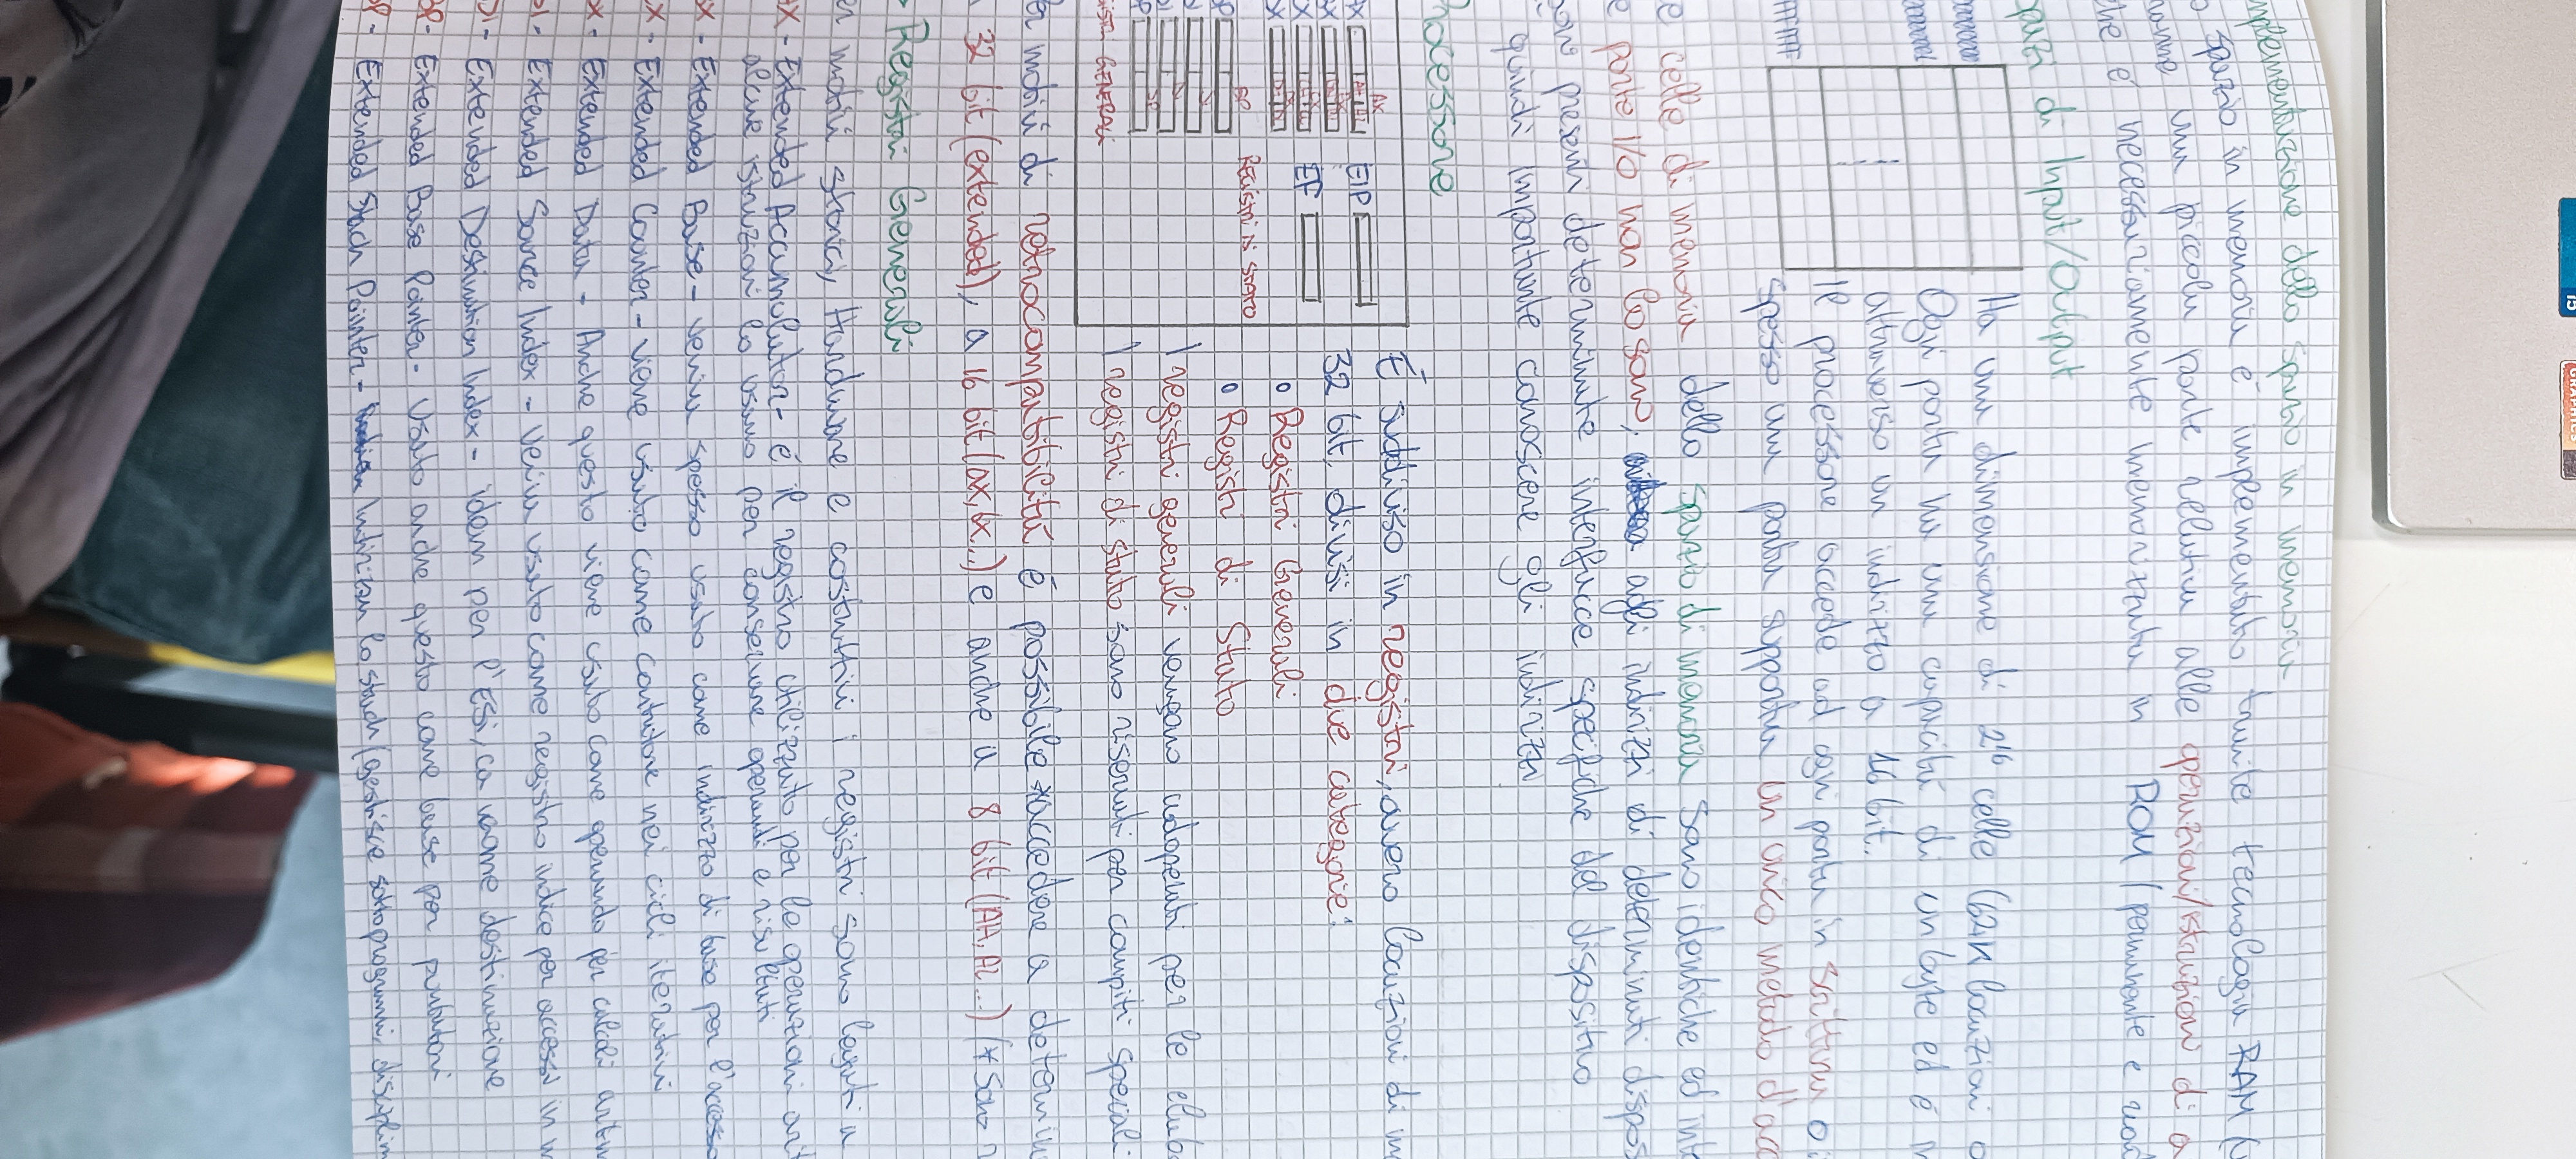 implementazione dello spazio in memoria
o spazio in memoria è implementato tramite tecnologia RAM (
tranne una piccola parte relativa alle operazioni/istruzioni di a
che è necessariamente memorizzata in ROM (permanente e
pazi di Input/Output
Ha una dimensione di 2^16 celle (64K locazioni o
Ogni porta ha una capacità di un byte ed è
attraverso un indirizzo a 16 bit.
Il processore accede ad ogni porta in scrittura o
spesso una porta supporta un unico metodo d'acc
e celle di memoria dello spazio di memoria sono identiche ed int
e porte I/O non lo sono; agli indirizzi di determinati dispos
sono presenti determinate interfacce specifiche del dispositivo
È quindi importante conoscere gli indirizzi
Processore
AX
AH AL
BX
CX
DX
BP
SP
EIP
EF
REGISTRI DI STATO
REGISTRI GENERALI
È suddiviso in registri, ovvero locazioni di m
32 bit, divisi in due categorie:
o Registri Generali
o Registri di Stato
I registri generali vengono adoperati per le elabo
I registri di stato sono riservati per compiti speciali
er motivi di retrocompatibilità è possibile *accedere a determin
32 bit (extended), a 16 bit (AX, BX..) e anche a 8 bit (AH, AL...) (*Sono
Registri Generali
er motivi storici, Hardware e costruttivi i registri sono legati a
AX - Extended Accumulator - è il registro utilizzato per le operazioni arit
alcune istruzioni lo usano per conservare operandi e risultati
BX - Extended Base - veniva spesso usato come indirizzo di base per l'accesso
CX - Extended Counter - viene usato come contatore nei cicli iterativi
DX - Extended Data - Anche questo viene usato come operando per calcoli aritm
SI - Extended Source Index - Veniva usato come registro indice per accessi in m
DI - Extended Destination Index - idem per l'ESI, ca come destinazione
BP - Extended Base Pointer - Usato anche questo come base per puntatori
SP - Extended Stack Pointer - Indirizza lo stack (gestisce sottoprogrammi, disciplin